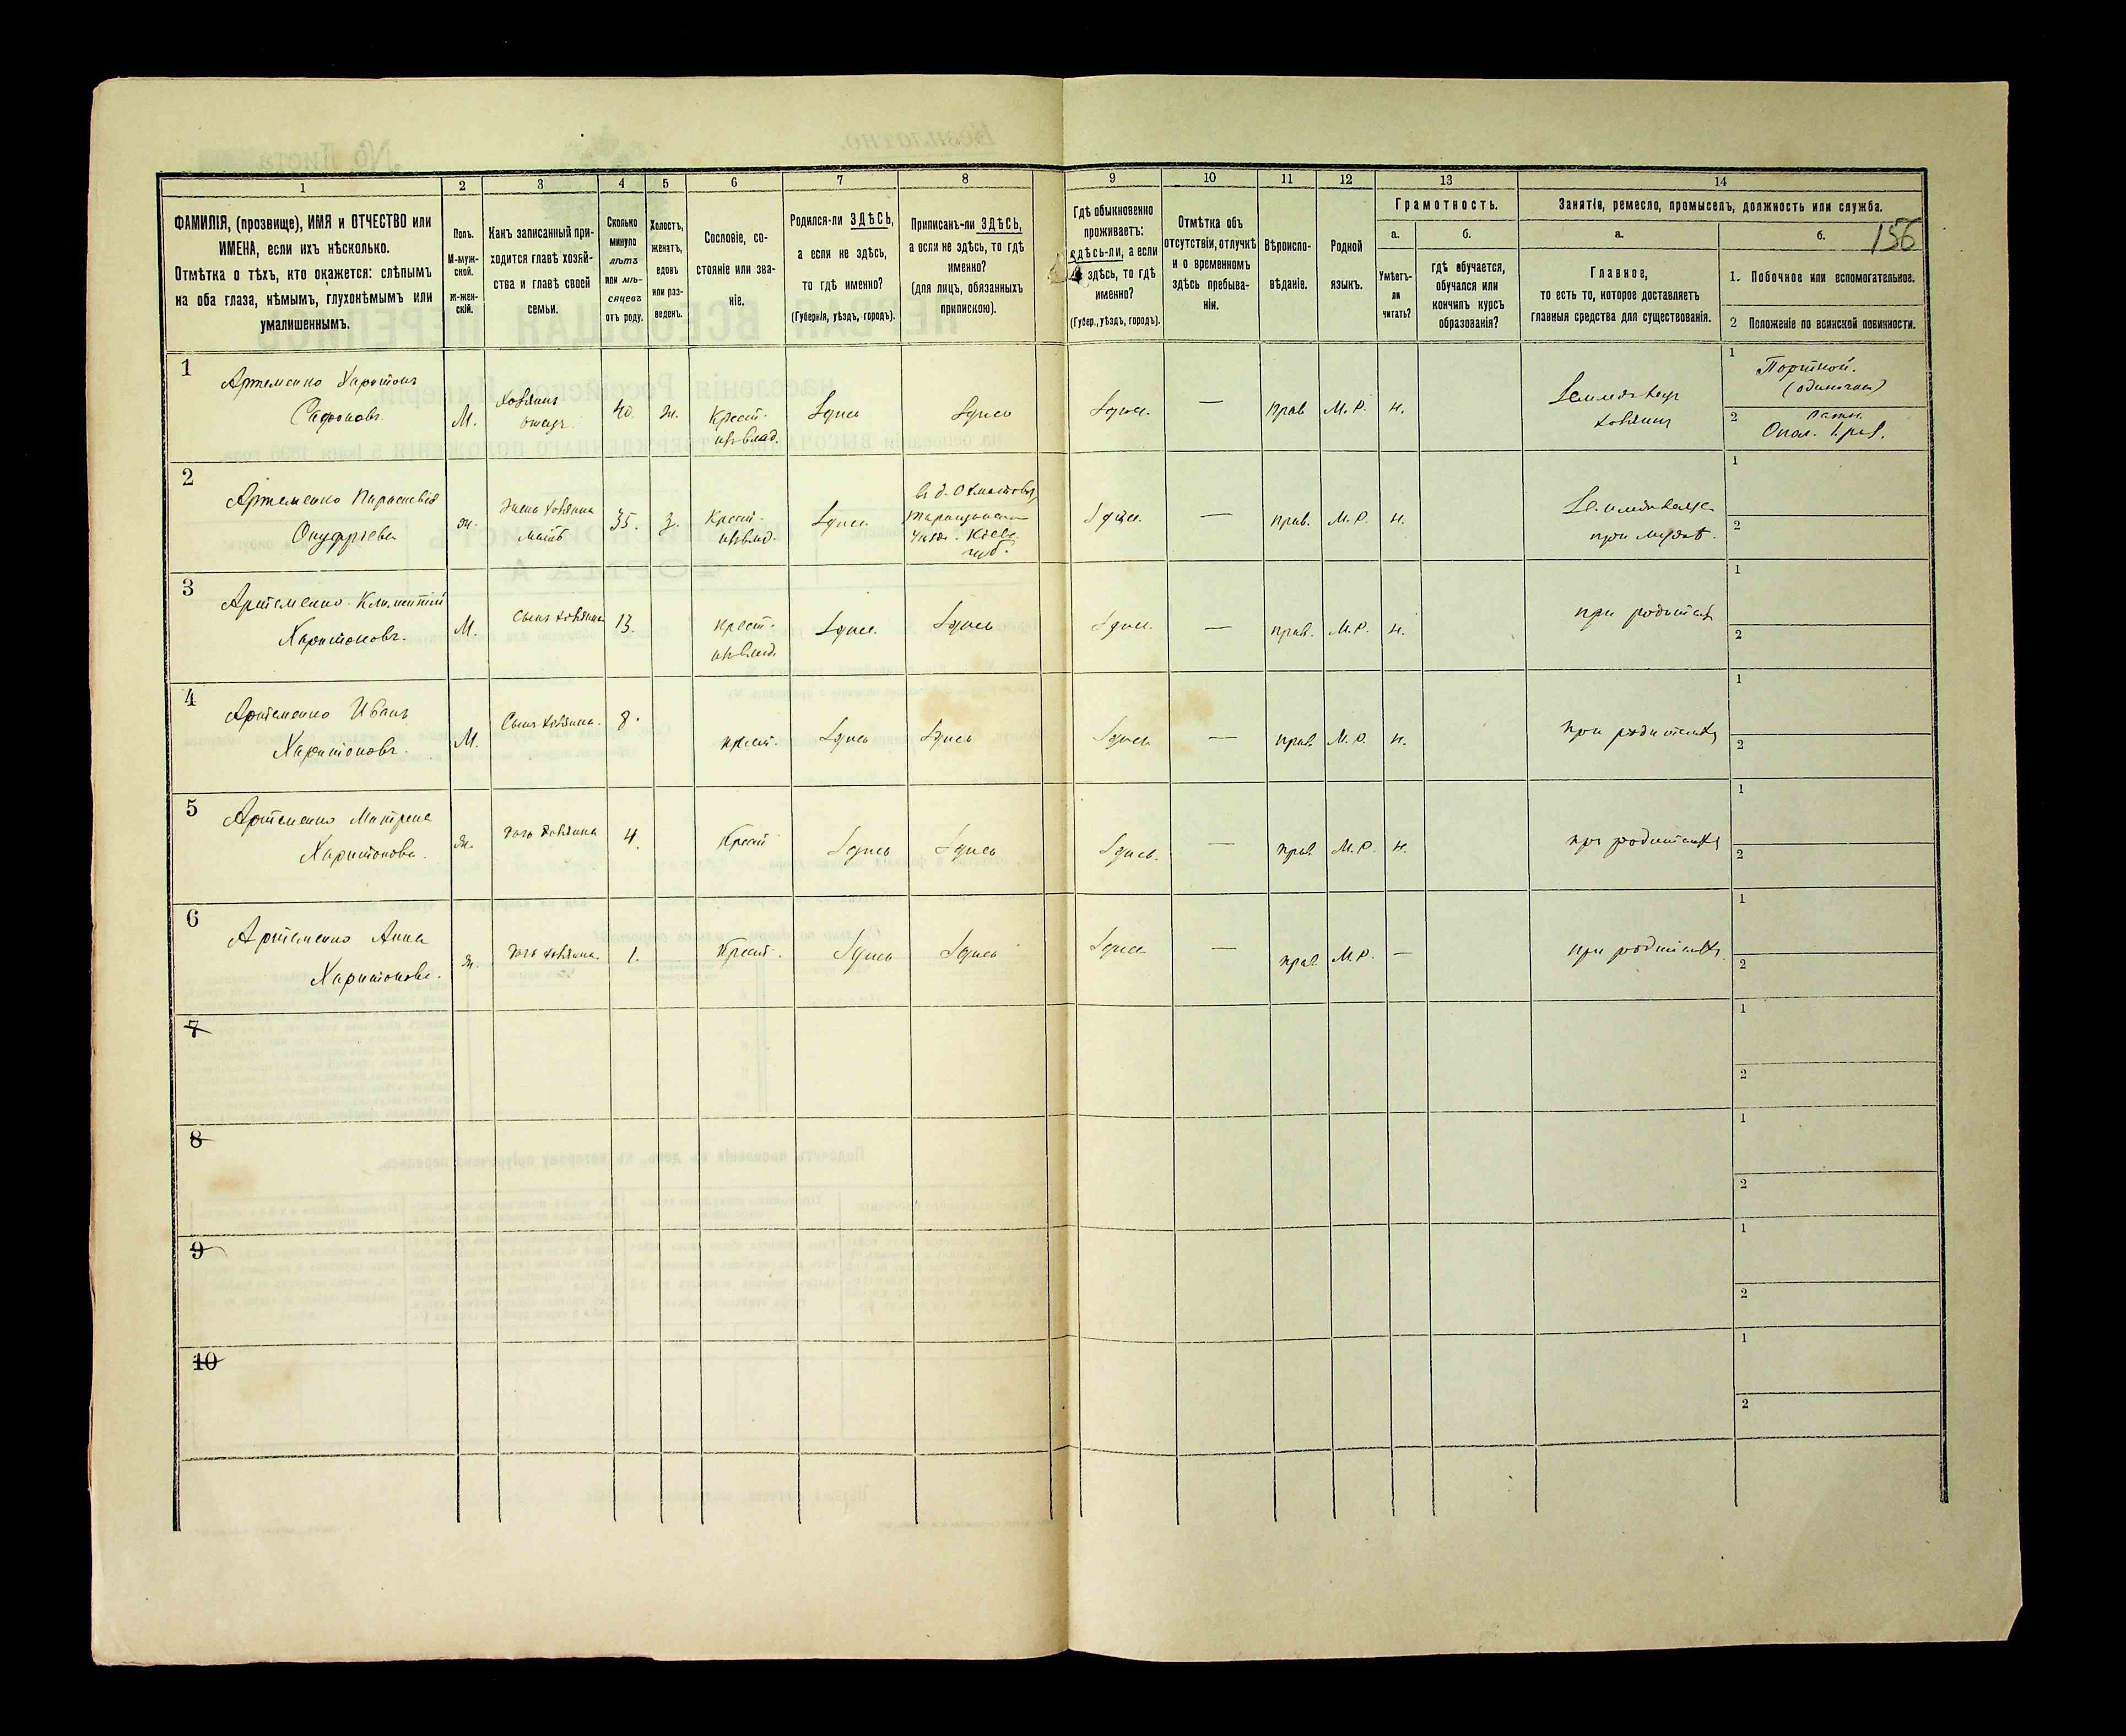 156
1 2 3 4 5 6 7 8 9 10 11 12 13 14
ФАМИЛІЯ, (прозвище), ИМЯ и ОТЧЕСТВО или
ИМЕНА, если ихъ нѣсколько.
Отмѣтка о тѣхъ, кто окажется: слѣпымъ
на оба глаза, нѣмымъ, глухонѣмымъ или
умалишеннымъ.
Полъ.
М-муж-
ской.
Ж-жен-
скій.
Какъ записанный при-
ходится главѣ хозяй-
ства и главѣ своей
семьи.
Сколько
минуло
лѣтъ
или мѣ-
сяцевъ
отъ роду.
Холостъ,
женатъ,
вдовъ
или раз-
веденъ.
Сословіе, со-
стояніе или зва-
ніе.
Родился-ли ЗДѢСЬ,
а если не здѣсь,
то гдѣ именно?
(Губернія, уѣздъ, городъ).
Приписанъ-ли ЗДѢСЬ,
а если не здѣсь, то гдѣ
именно?
(для лицъ, обязанныхъ
припискою).
Гдѣ обыкновенно
проживаетъ:
здѣсь-ли, а если
не здѣсь, то гдѣ
именно?
(Губер., уѣздъ, городъ).
Отмѣтка объ
отсутствіи, отлучкѣ
и о временномъ
здѣсь пребыва-
ніи.
Вѣроиспо-
вѣданіе.
Родной
языкъ.
Грамотность.
а.
Умѣетъ-
ли
читать?
б.
гдѣ обучается,
обучался или
кончилъ курсъ
образованія?
Занятіе, ремесло, промыселъ, должность или служба.
а.
Главное,
то есть то, которое доставляетъ
главныя средства для существованія.
б.
1. Побочное или вспомогательное.
2 Положеніе по воинской повинности.
1
Артеменко Харитонъ
Сафоновъ.
М.
Хозяинъ
отецъ.
40.
ж.
Крест.
изъ влад.
Здѣсь
Здѣсь
Здѣсь.
—
прав
М. Р.
н.
хозяинъ
1
Портной.
2
Опол. 1. раз.
2
Артеменко Параскевія
Онуфріева
ж.
Жена хозяина
мать
35.
з.
Крест.
изъ влад.
Здѣсь
Таращанск
уѣзд. Кіевс
губ.
Здѣсь.
—
прав.
М. Р.
н.
при мужѣ.
1
2
3
Артеменко Климентій
Харитоновъ.
М.
Сынъ хозяина
13.
крест.
изъ влад.
Здѣсь.
Здѣсь
Здѣсь.
—
прав.
М. Р.
н.
при родителях
1
2
4
Артеменко Иванъ
Харитоновъ.
М.
Сынъ хозяина.
8.
крест.
Здѣсь
Здѣсь
Здѣсь
—
прав.
М. Р.
н.
при родителях
1
2
5
Артеменко Матрена
Харитонова.
ж.
дочь хозяина
4.
Крест
Здѣсь
Здѣсь
Здѣсь.
—
прав.
М. Р.
н.
при родителях
1
2
6
Артеменко Анна
Харитонова.
ж.
дочь хозяина.
1.
Крест.
Здѣсь
Здѣсь
Здѣсь
—
прав.
М. Р.
—
при родителях
1
2
7
1
2
8
1
2
9
1
2
10
1
2